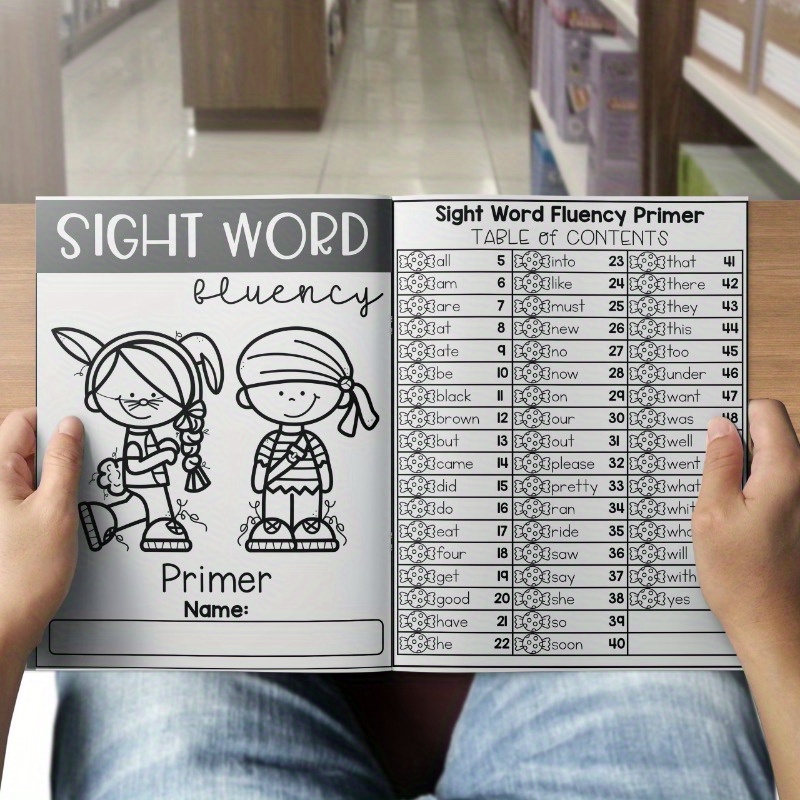 SIGHT WORD
fluency
Primer
Name:
Sight Word Fluency Primer
TABLE of CONTENTS
all 5 into 23 that 41
am 6 like 24 there 42
are 7 must 25 they 43
at 8 new 26 this 44
ate 9 no 27 too 45
be 10 now 28 under 46
black 11 on 29 want 47
brown 12 our 30 was 48
but 13 out 31 well
came 14 please 32 went
did 15 pretty 33 what
do 16 ran 34
eat 17 ride 35 who
four 18 saw 36 will
get 19 say 37 with
good 20 she 38 yes
have 21 so 39
he 22 soon 40